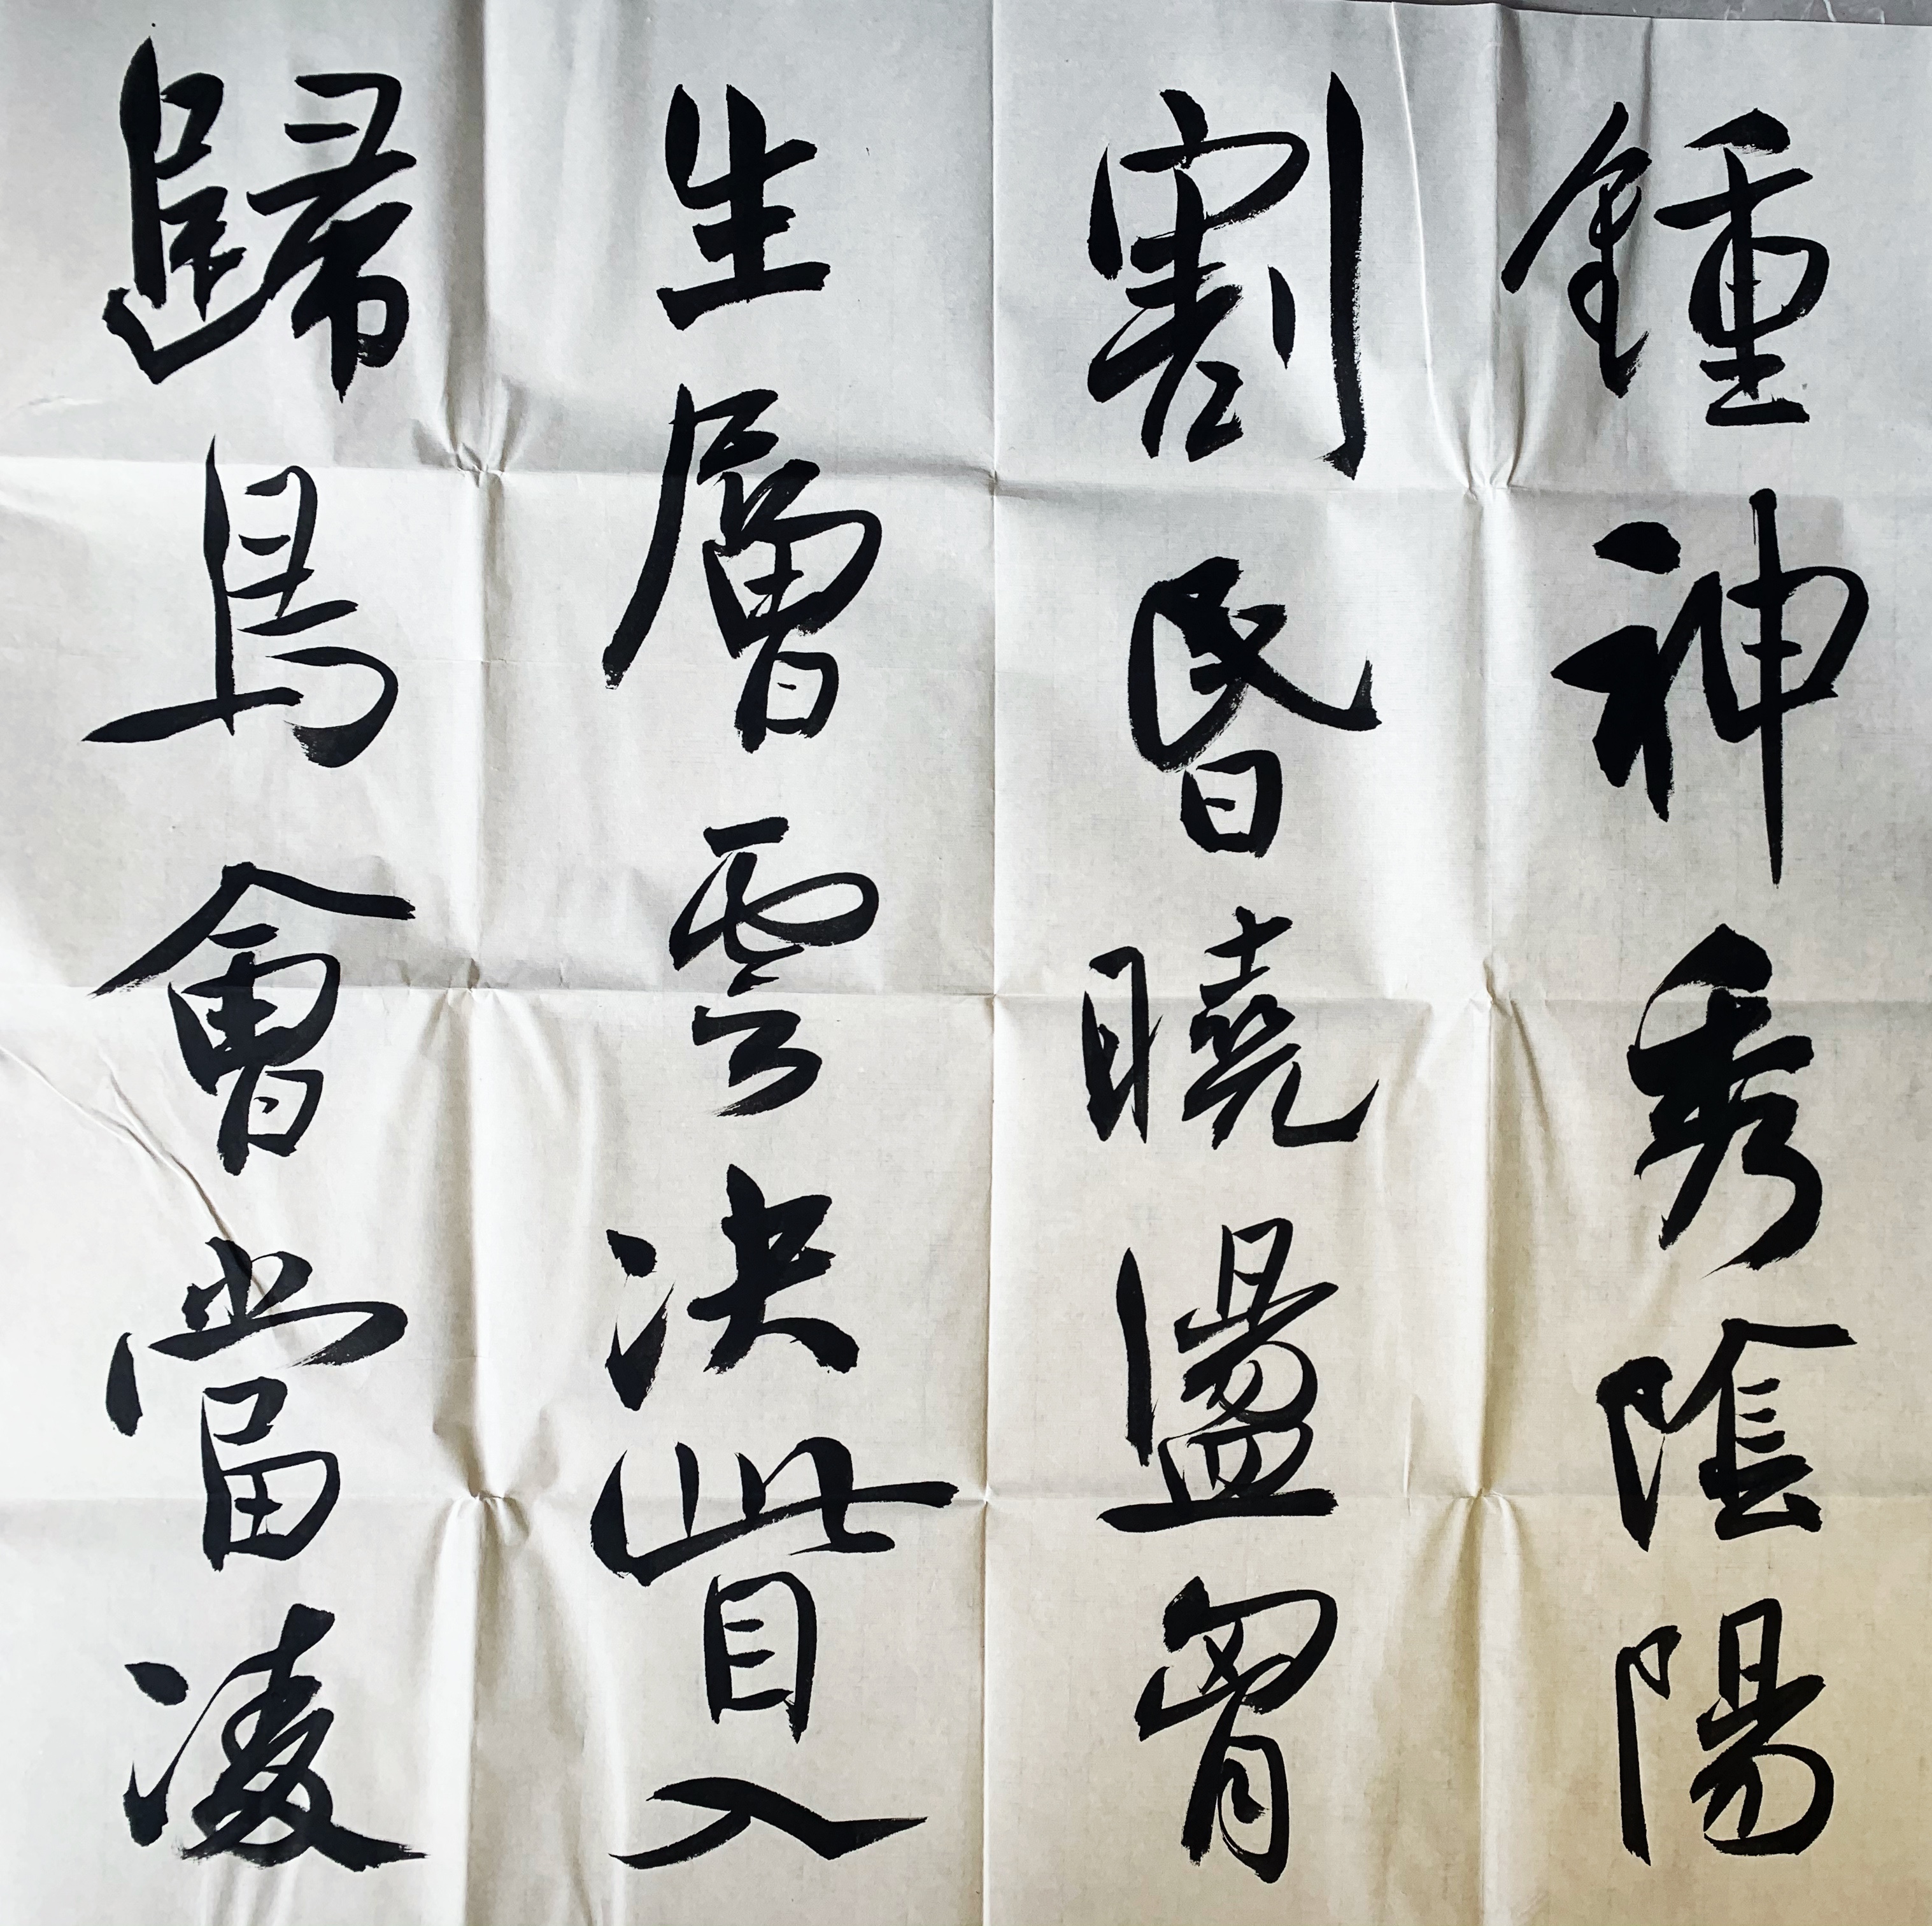 鍾神秀陰陽
割昏曉盪胷
生層雲決眥入
歸鳥會當凌